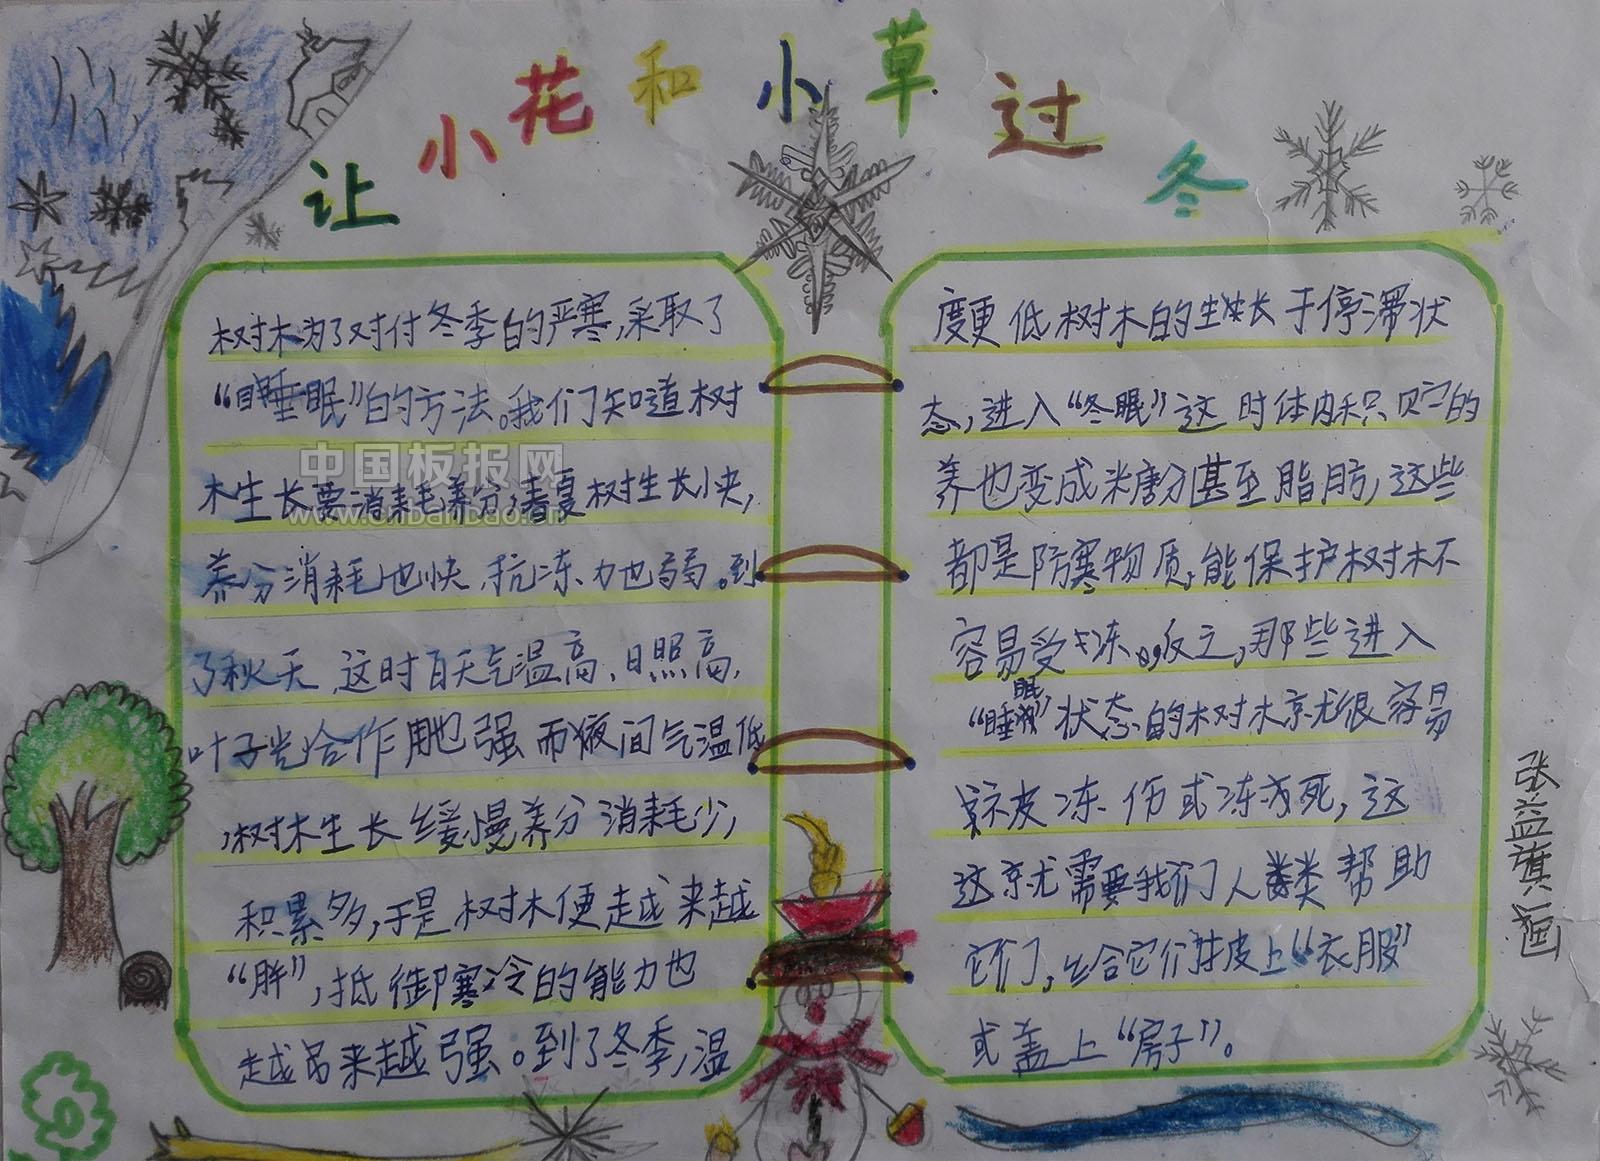 让小花和小草过冬
树木为了对付冬季的严寒,采取了
“睡眠”的方法。我们知道树
木生长要消耗养分,春夏树生长快,
养分消耗也快,抗冻力也弱。到
了秋天,这时百天气温高,日照高,
叶子光合作用也强而夜间气温低
,树木生长缓慢养分消耗少,
积累多,于是树木便越来越
“胖”,抵御寒冷的能力也
越来越强。到了冬季,温
度更低树木的生长于停滞状
态,进入“冬眠”这时体内积贮的
养也变成米糖分甚至脂肪,这些
都是防寒物质,能保护树木不
容易受冻。反之,那些进入
“睡眠”状态的树木就很容易
被冻伤或冻死,这
这就需要我们人类帮助
它们,给它们披上“衣服”
或盖上“房子”。
张益旗画
中国板报网
www.cnbanbao.cn